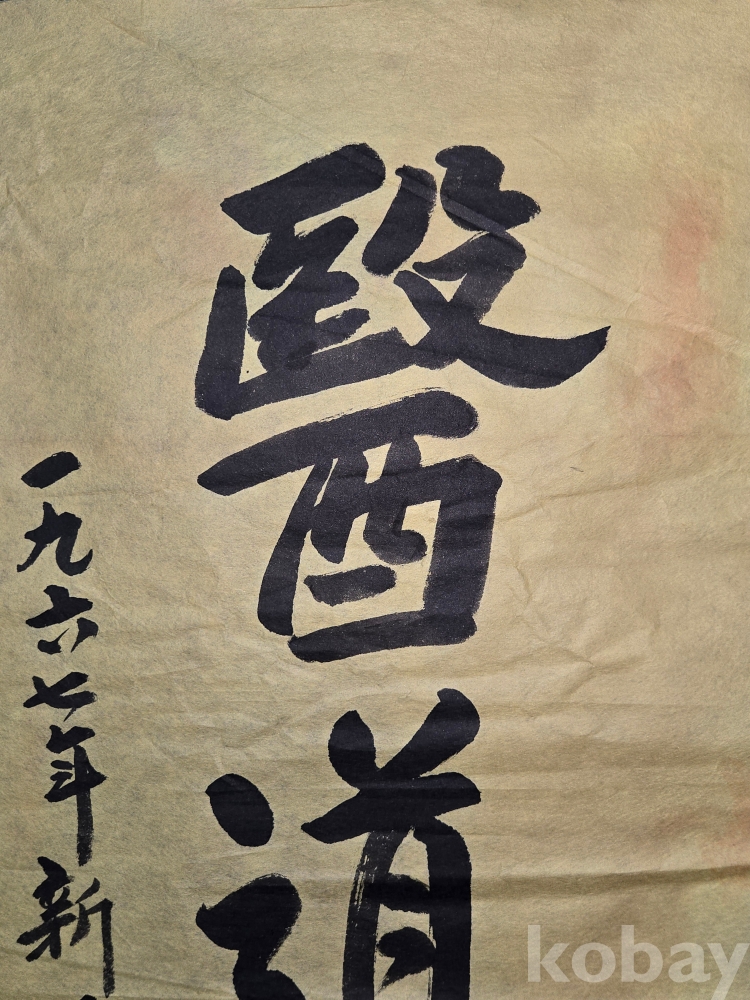 醫道
一九六七年新
kobay